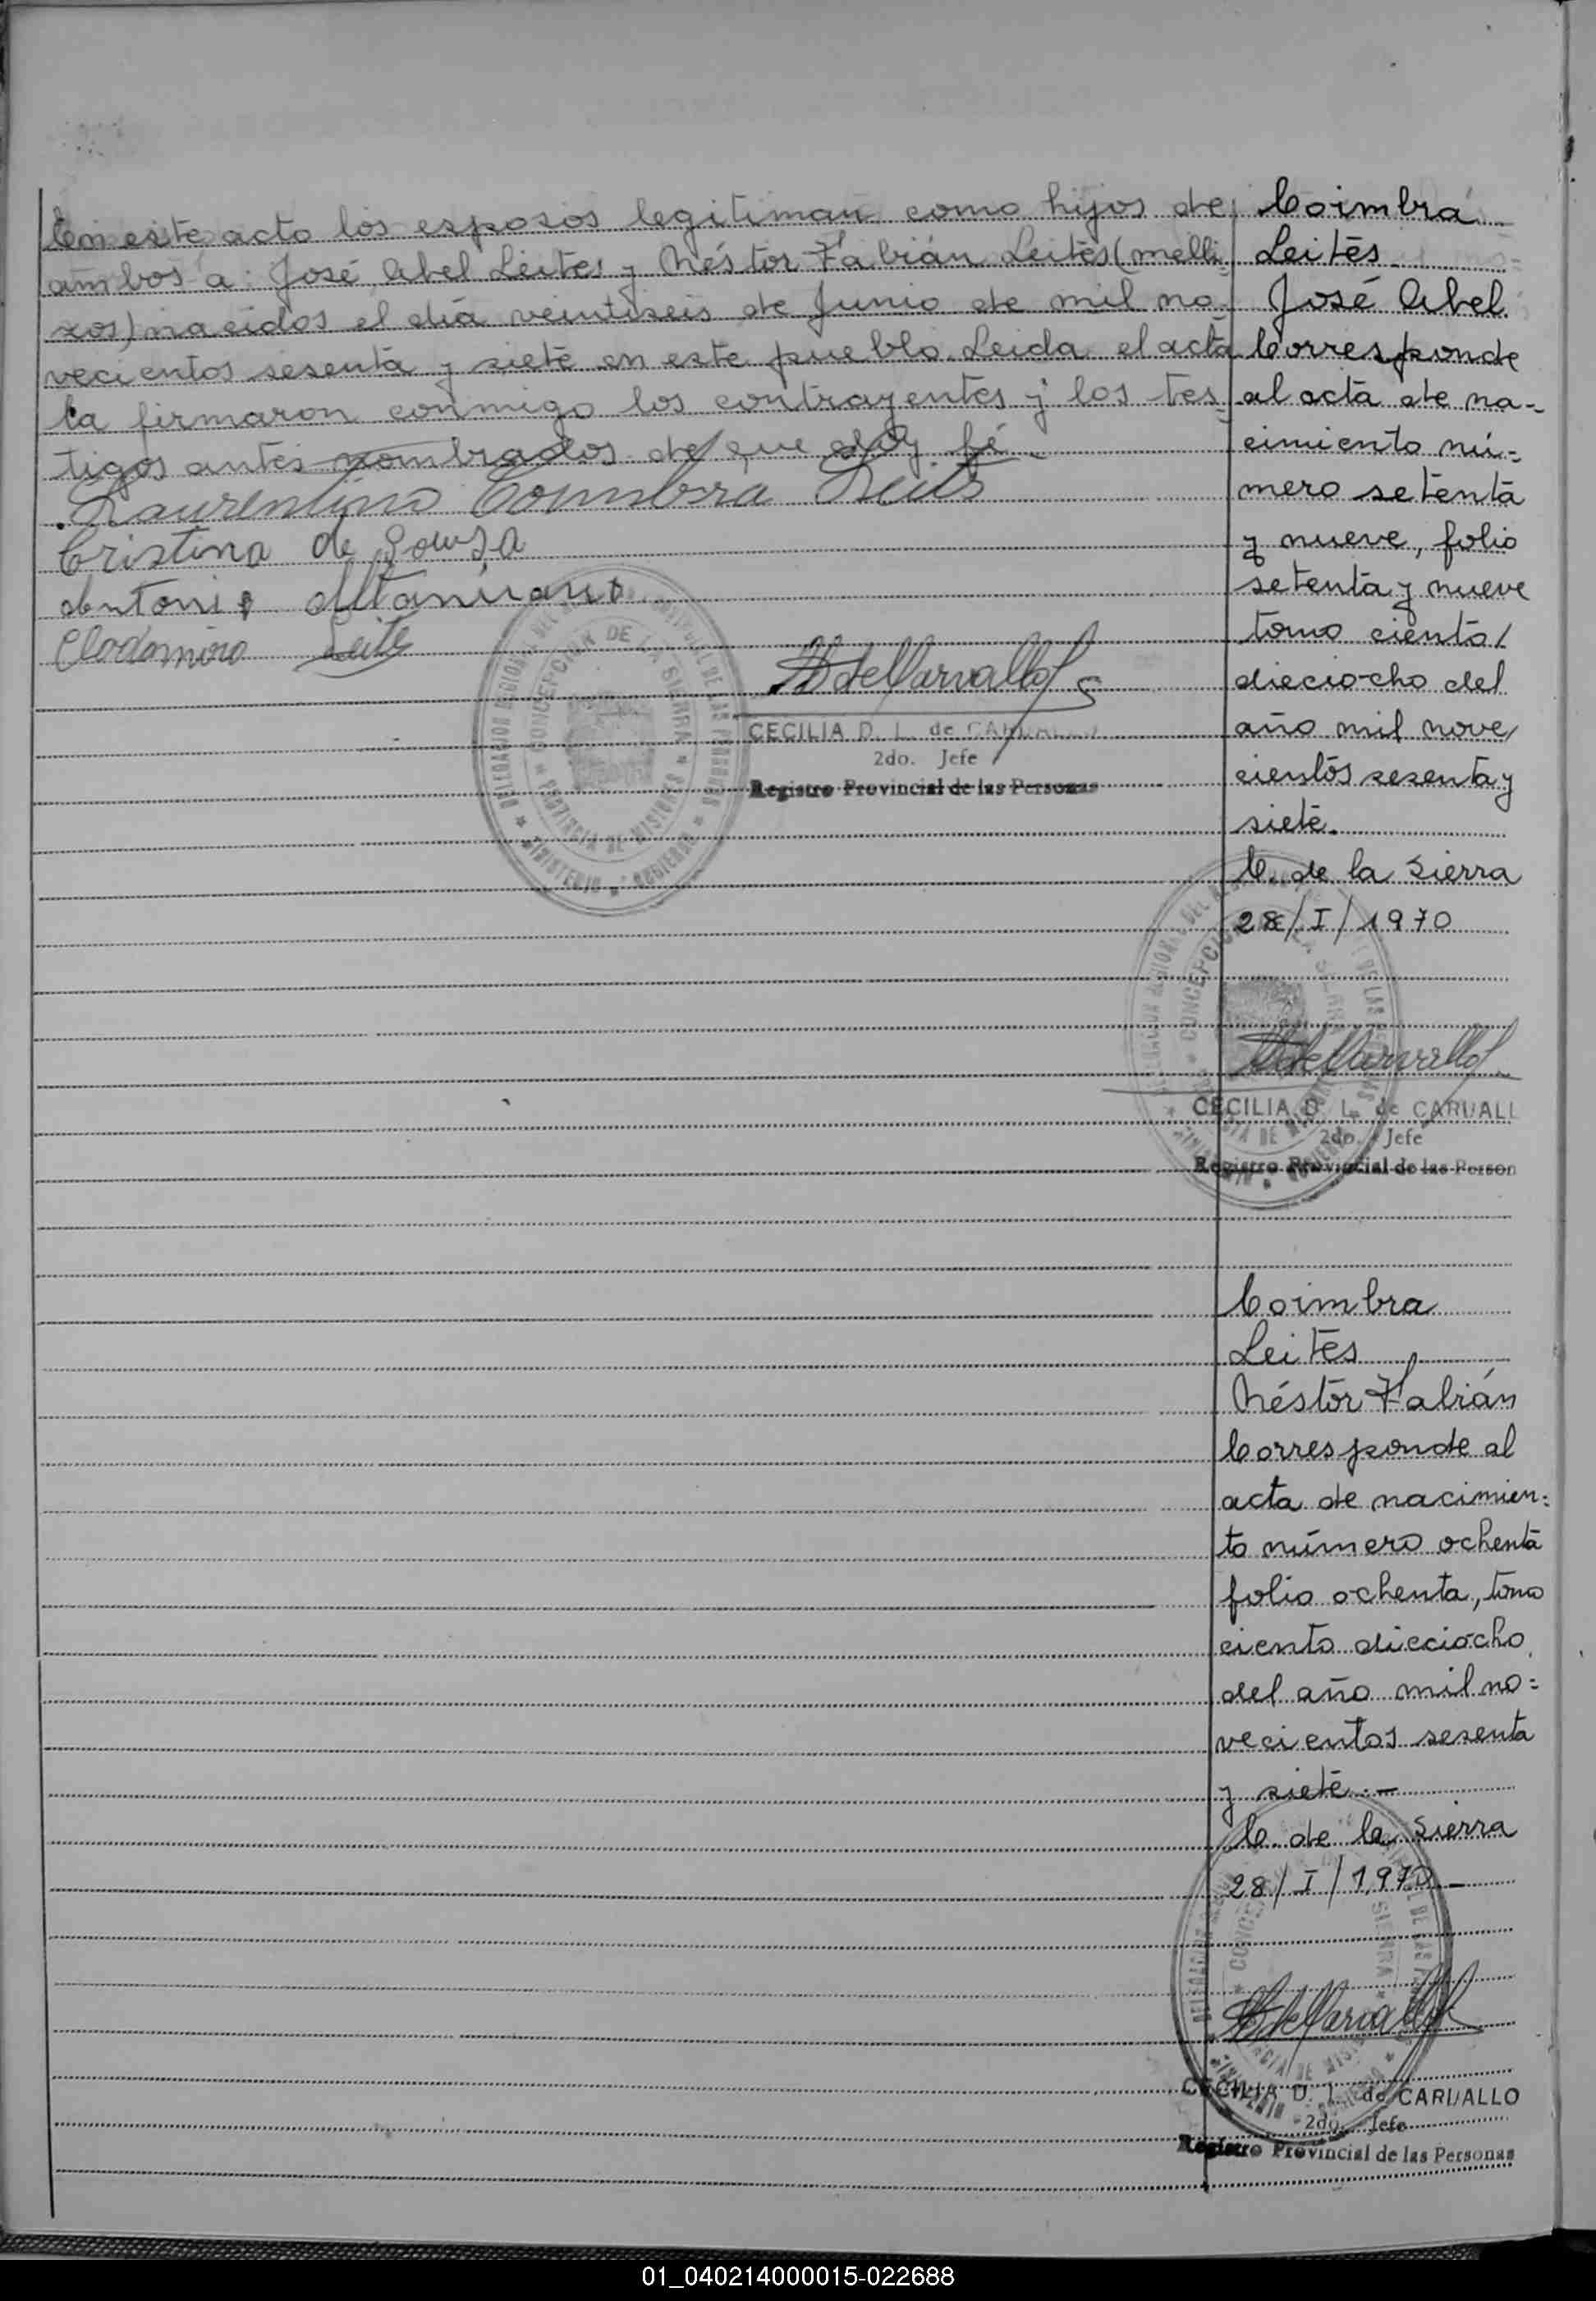 En este acto los esposos legitiman como hijos de
ambos a: José Abel Leites y Néstor Fabián Leites (melli=
zos) nacidos el día veintiseis de Junio de mil no-
vecientos sesenta y siete en este pueblo. Leida el acta
la firmaron conmigo los contrayentes y los tes=
tigos antes nombrados de que doy fé.-
Laurentino Coimbra Leites
Cristina de Souza
Antonio Altamirano
Clodomiro Leite
DELEGACION REGIONAL DEL REGISTRO PROVINCIAL DE LAS PERSONAS
CONCEPCION DE LA SIERRA
PROVINCIA DE MISIONES
MINISTERIO GOBIERNO
CECILIA D. L. de CARVALLO
2do. Jefe
Registro Provincial de las Personas
Coimbra
Leites
José Abel
Corresponde
al acta de na-
cimiento nú=
mero setenta
y nueve, folio
setenta y nueve
tomo ciento/
dieciocho del
año mil nove/
cientos sesenta y
siete.
C. de la Sierra
28/I/1970
CECILIA D. L. de CARVALL
2do. Jefe
Registro Provincial de las Person
Coimbra
Leites
Néstor Fabián
Corresponde al
acta de nacimien=
to número ochenta
folio ochenta, tomo
ciento dieciocho
del año mil no=
vecientos sesenta
y siete.-
C. de la Sierra
28/I/1,970-
CECILIA D. L. de CARVALLO
2do. Jefe
Registro Provincial de las Personas
01_040214000015-022688